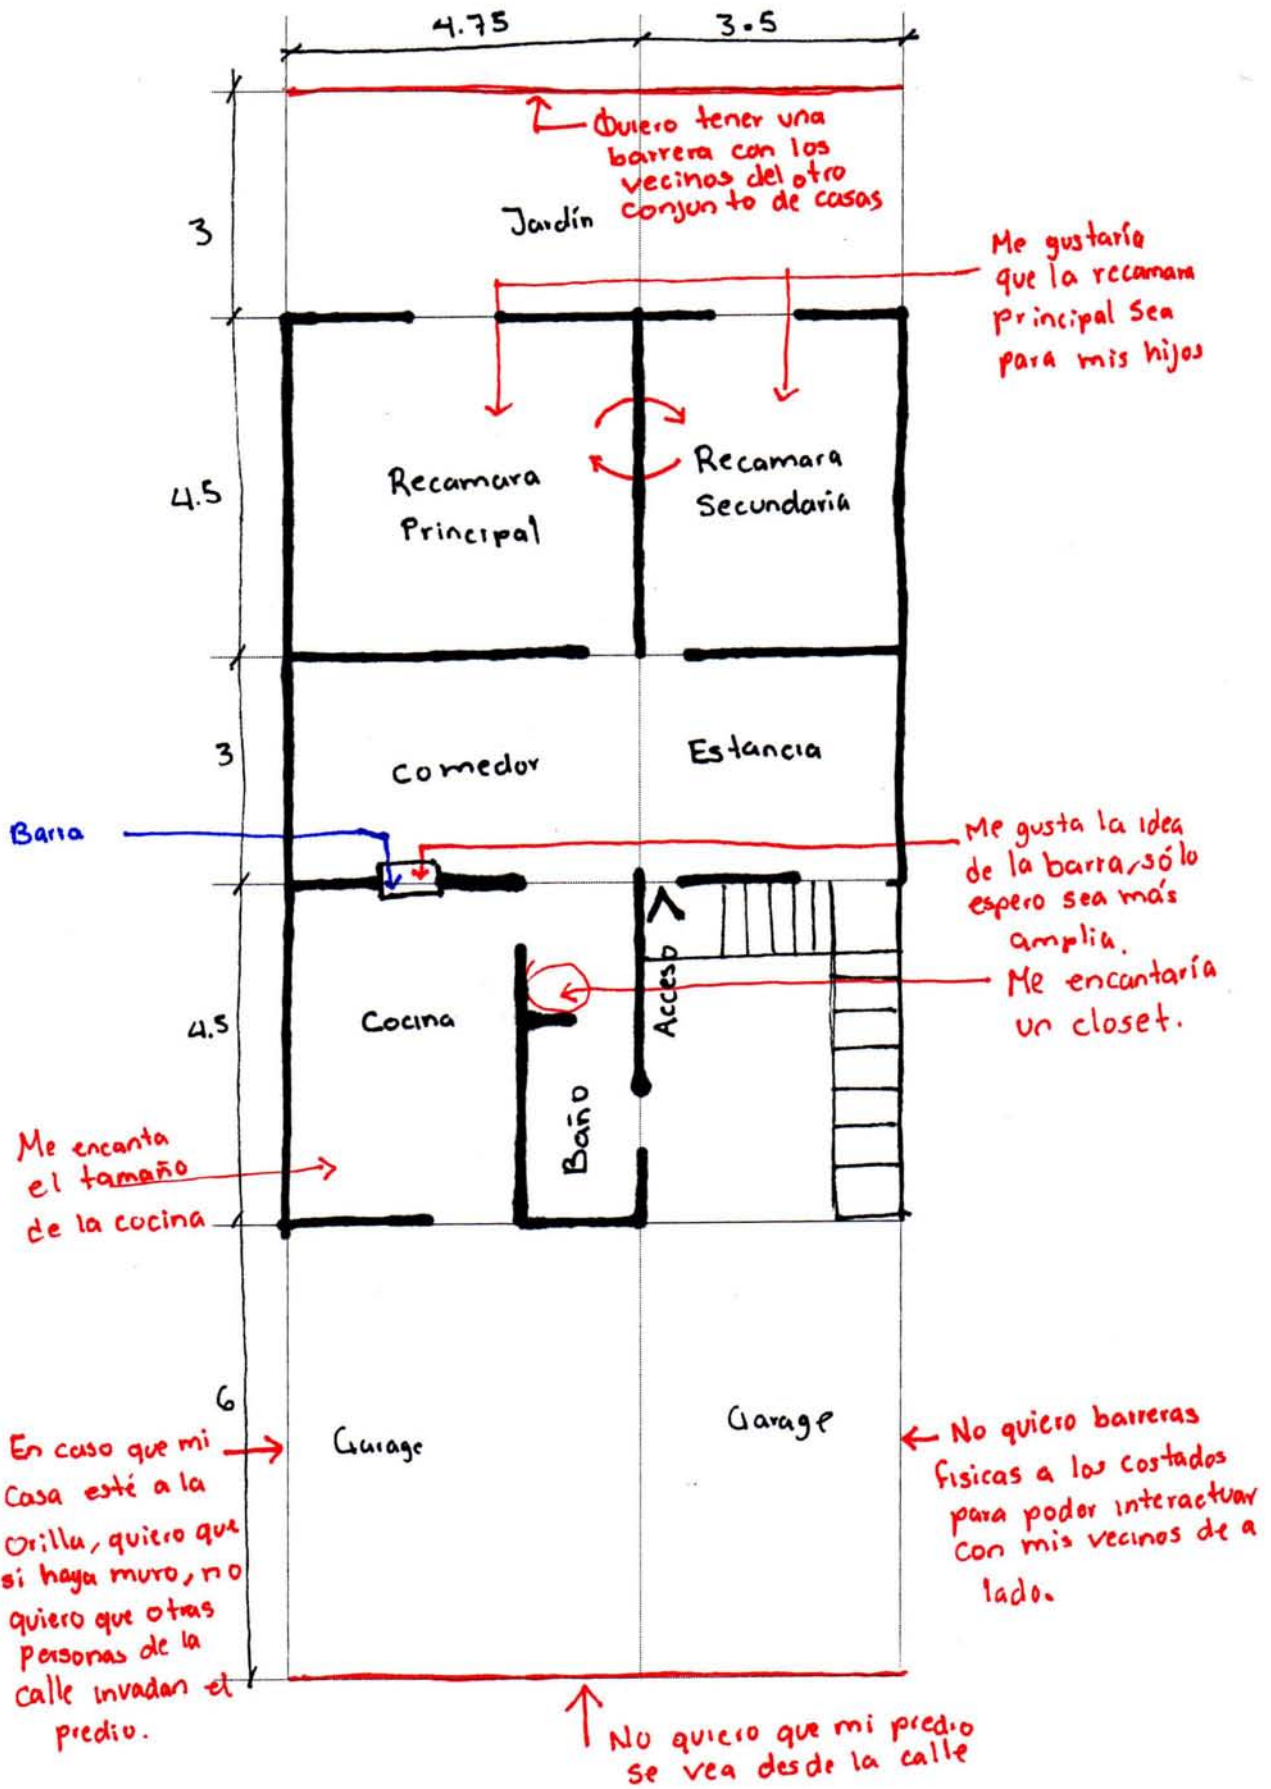 4.75
3.5
Quiero tener una
barrera con los
vecinos del otro
conjunto de casas
3
Jardín
Me gustaría
que la recamara
principal sea
para mis hijos
4.5
Recamara
Principal
Recamara
Secundaria
3
Comedor
Estancia
Barra
Me gusta la idea
de la barra, sólo
espero sea más
amplia.
Me encantaría
un closet.
4.5
Cocina
Acceso
Baño
Me encanta
el tamaño
de la cocina
6
Garage
Garage
En caso que mi
casa esté a la
orilla, quiero que
si haya muro, no
quiero que otras
personas de la
calle invadan el
predio.
No quiero barreras
fisicas a los costados
para poder interactuar
con mis vecinos de a
lado.
No quiero que mi predio
se vea desde la calle